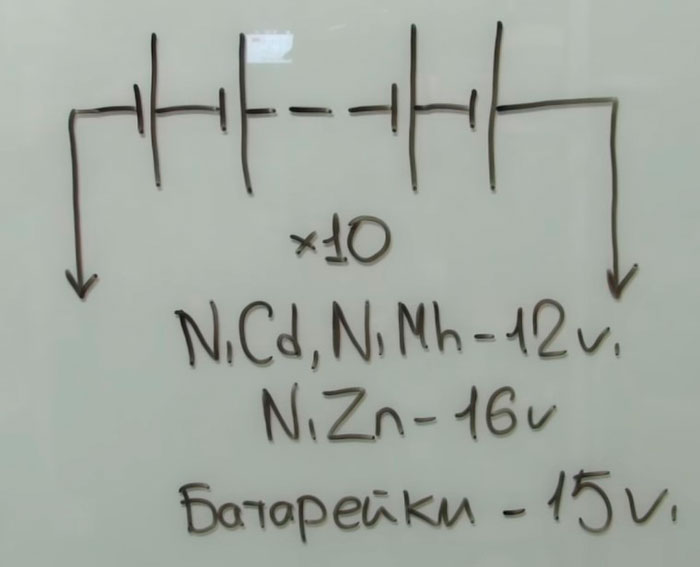 ×10
NiCd, NiMh - 12v.
NiZn - 16v
Батарейки - 15v.